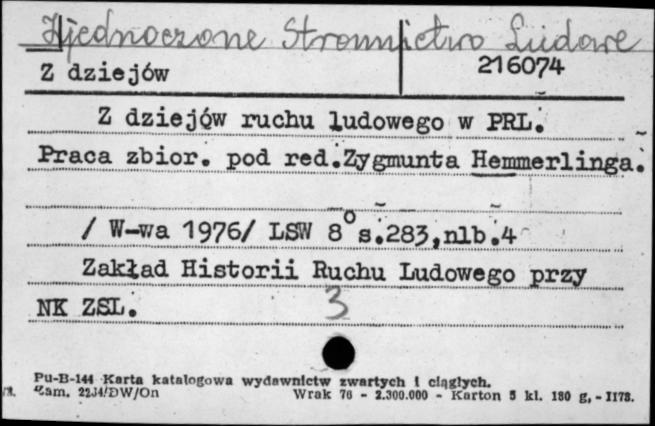 Zjednoczone Stronnictwo Ludowe
Z dziejów 216074
Z dziejów ruchu ludowego w PRL.
Praca zbior. pod red.Zygmunta Hemmerlinga.
/ W-wa 1976/ LSW 8° s.283,nlb.4
Zakład Historii Ruchu Ludowego przy
NK ZSL. 3
Pu-B-144 Karta katalogowa wydawnictw zwartych i ciągłych.
Zam. 2234/DW/On Wrak 76 - 2.300.000 - Karton 5 kl. 180 g, - 1178.